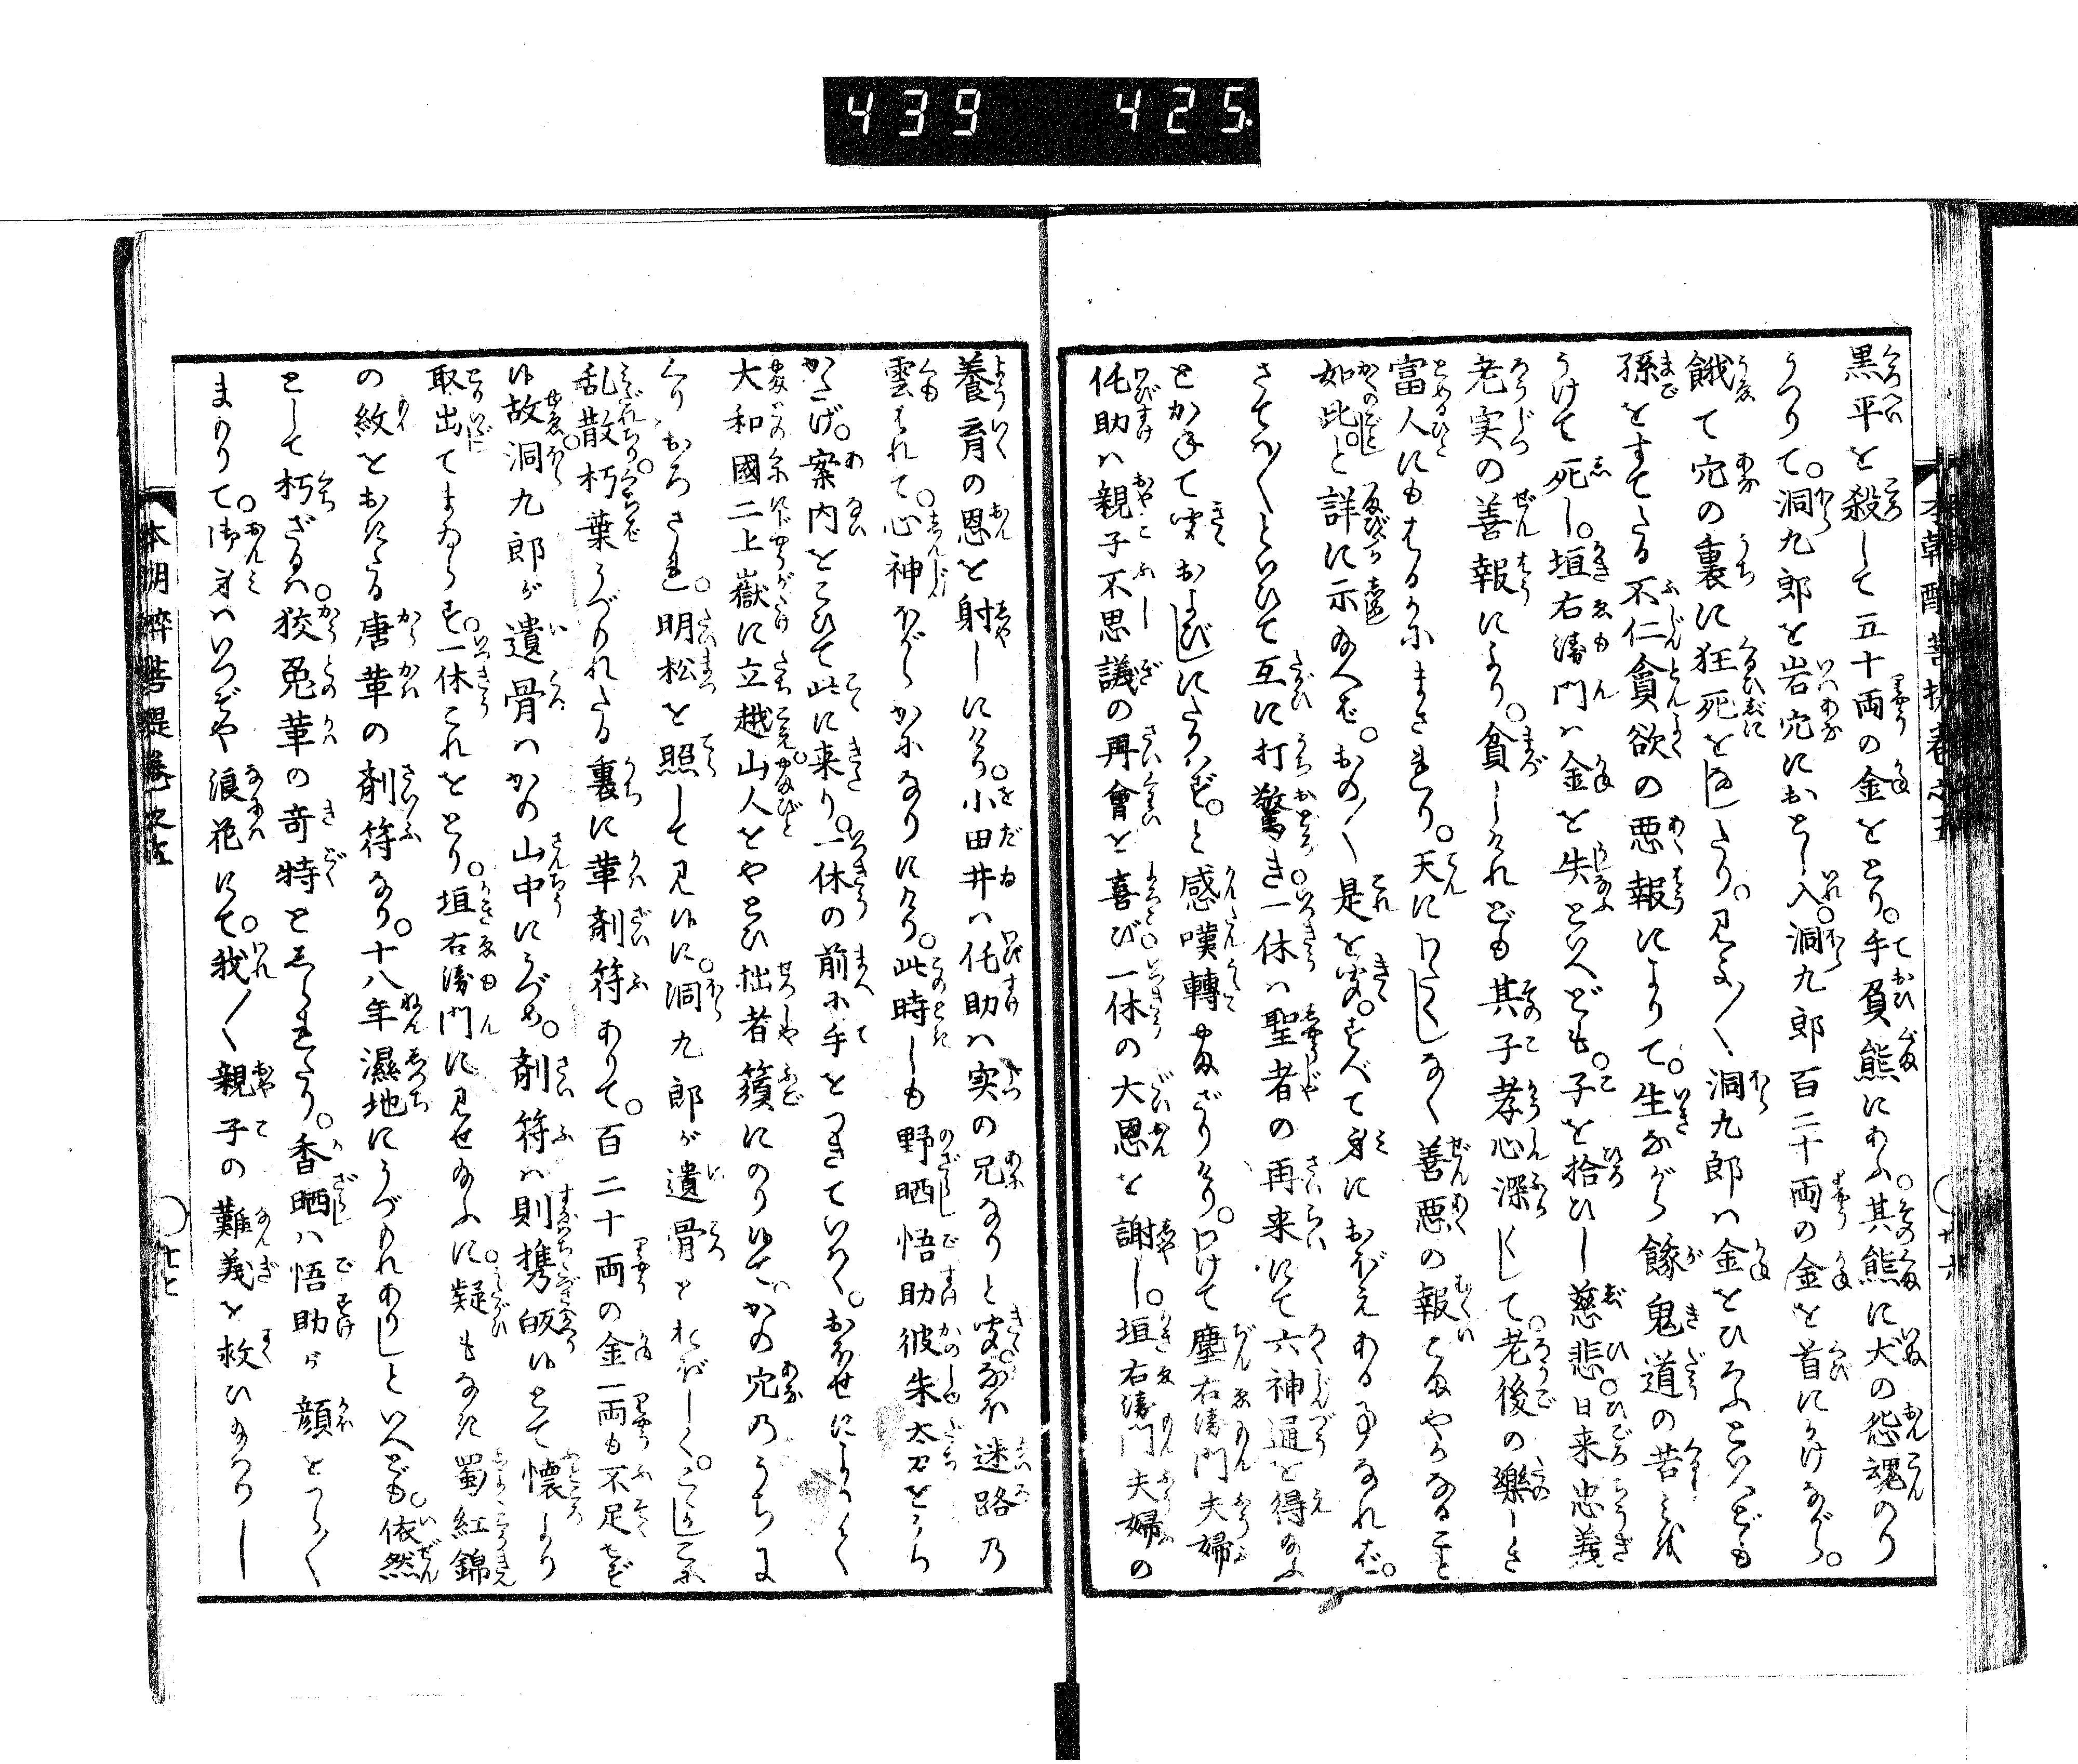 439 425.
黒平を殺して五十両の金をとり。手負熊にあふ。其熊に犬の怨魂のり
うつりて。洞九郎を岩穴におとし入。洞九郎百二十両の金を首にかけながら。
餓て穴の裏に狂死をなしたり。見よ〳〵洞九郎ハ金をひろふといへども
孫をすてたる不仁貪欲の悪報によりて。生ながら餓鬼道の苦しみを
うけて死し。垣右衛門ハ金を失といへども。子を拾ひし慈悲。日来忠義
老実の善報により。貧しけれども其子孝心深くして。老後の樂しき
富人にもはるかにまされり。天にわたくしなく善悪の報すみやかなること
如此。と詳に示玉へば。おの〳〵是を聞。すべて身におぼえある事なれば。
さては〳〵といひて互に打驚き。一休ハ聖者の再来にて六神通を得玉ふ
とかねて聞およびしにたがハず。と感嘆轉せざりけり。わけて塵右衛門夫婦
侘助ハ親子不思議の再會を喜び一休の大恩を謝し。垣右衛門夫婦の
本朝酔菩提巻之五
十六
養育の恩を謝しにけり。小田井ハ侘助ハ実の兄なりと聞。なほ迷路の
雲はれて。心神ほがらかになりにけり。此時しも野晒悟助彼朱太刀をうち
かたげ。案内をこひて此に来り。一休の前に手をつきていはく。おほせにより
大和國二上嶽に立越。山人をやとひ拙者簣にのりゆきかの穴のうちに
くりおろさせ。明松を照して見候に。洞九郎が遺骨とおぼしく。こゝかしこに
乱散。朽葉うづもれたる裏に革剤符ありて。百二十両の金一両も不足せず
候故。洞九郎が遺骨ハかの山中にうづめ。剤符ハ則携皈候とて懐より
取出てまゐらす。一休これをとり。垣右衛門に見せ玉ふに。疑もなき蜀紅錦
の紋をおきたる唐革の剤符なり。十八年濕地にうづもれありしといへども。依然
として朽ざるハ。狡兔革の奇特としられたり。香晒ハ悟助が顔をつく〳〵
まもりて。御身ハいつぞや浪花にて。我〳〵親子の難義を救ひ玉ハりし
本朝酔菩提巻之五
十七